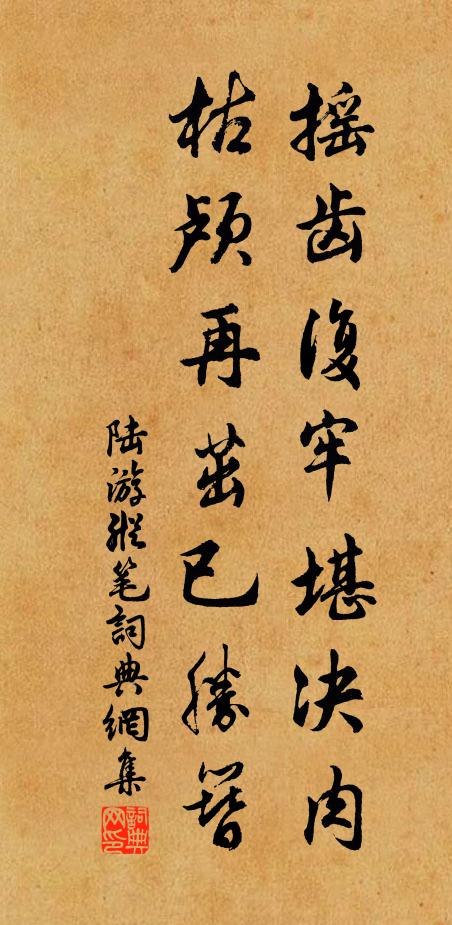 摇齿復牢堪决肉
枯颅再茁已勝簪
陆游縱笔詞典網集
詞典网印